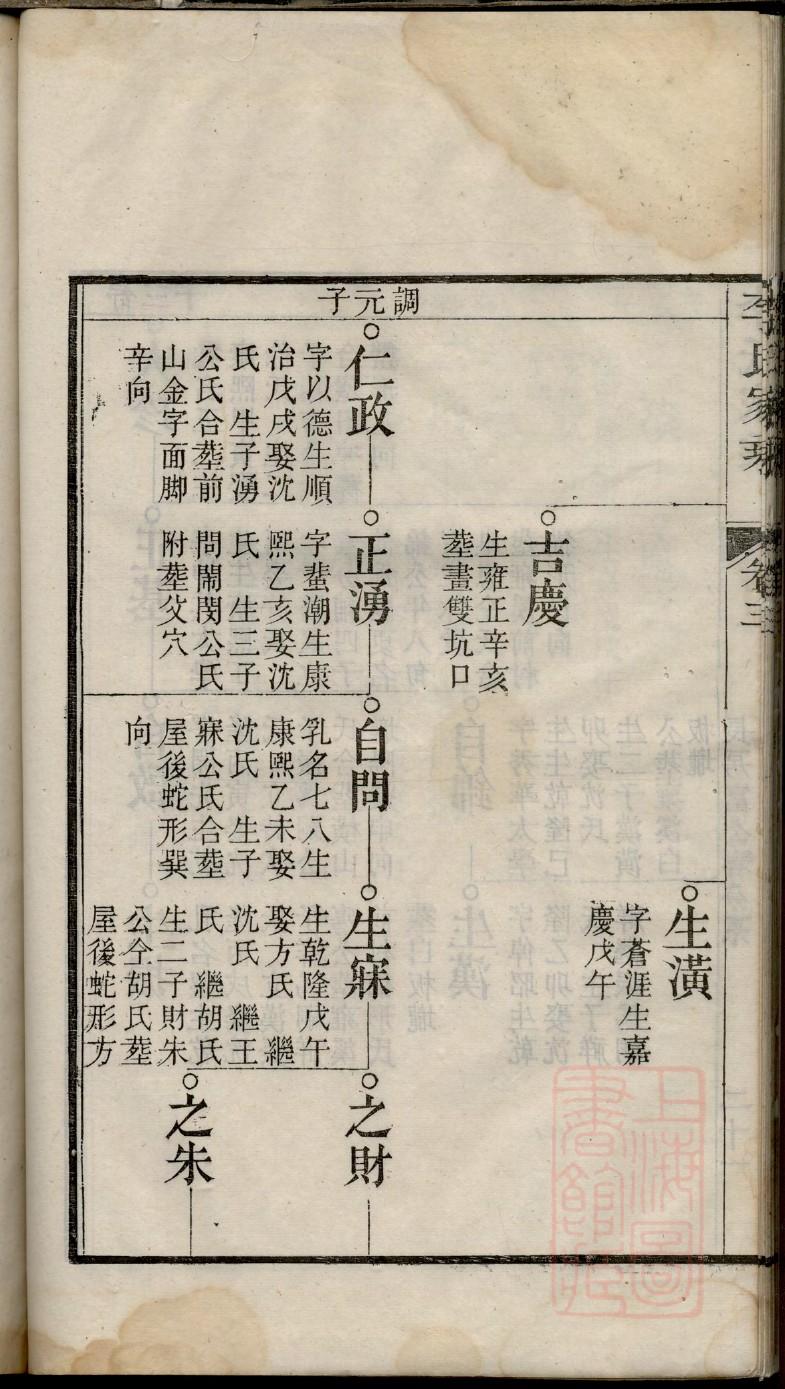 李氏家乘
卷三
生潢
字蒼涯生嘉
慶戊午
吉慶
生雍正辛亥
塟畫雙坑口
調元子
仁政
字以德生順
治戊戌娶沈
氏 生子湧
公氏合塟前
山金字面脚
辛向
正湧
字蜚潮生康
熙乙亥娶沈
氏 生三子
問閙閔公氏
附塟父穴
自問
乳名七八生
康熙乙未娶
沈氏 生子
寐公氏合塟
屋後蛇形巽
向
生寐
生乾隆戊午
娶方氏 繼
沈氏 繼王
氏 繼胡氏
生二子財朱
公仝胡氏塟
屋後蛇形方
之財
之朱
上海圖
書館藏